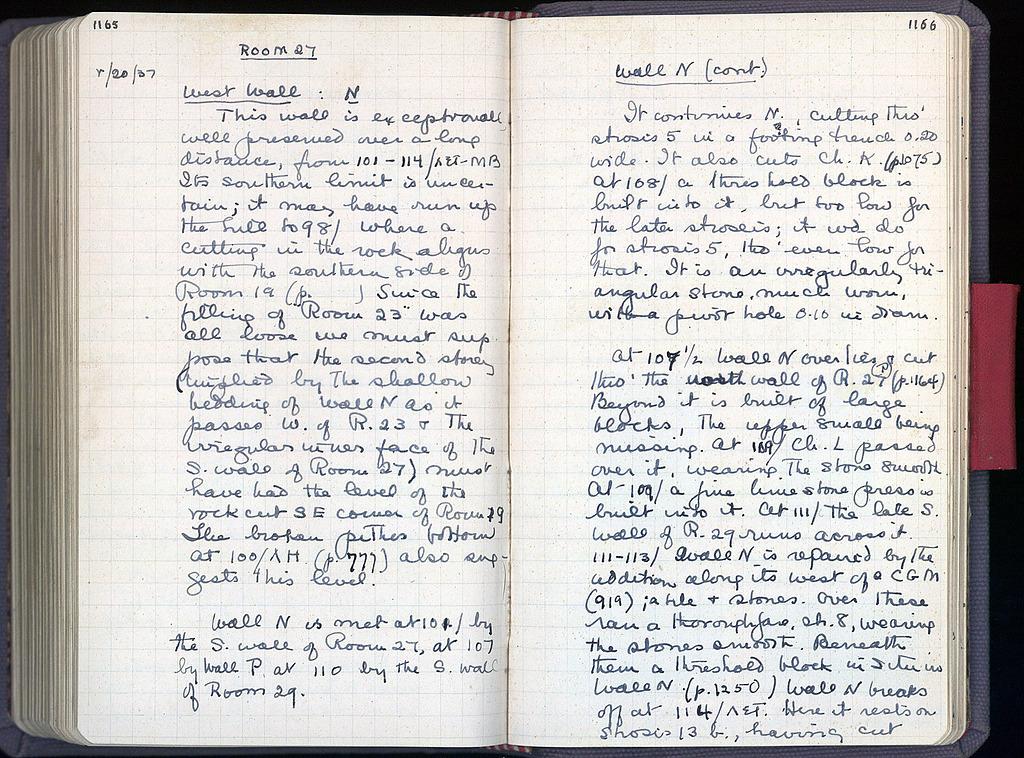 1165
ROOM 27
V/20/37
West Wall : N
This wall is exceptionally
well preserved over a long
distance, from 101 - 114/ΛΕΤ-MB
Its southern limit is uncer-
tain; it may have run up
the hill to 98/ where a
cutting in the rock aligns
with the southern side of
Room 19 (p. ) Since the
filling of "Room 23" was
all loose we must sup
pose that the second storey
(implied by the shallow
bedding of Wall N as it
passes W. of R. 23 & the
irregular inner face of the
S. wall of Room 27) must
have had the level of the
rock cut SE corner of Room 29
The broken pithos bottom
at 100/ΛH (p. 777) also sug-
gests this level.
Wall N is met at 101/ by
the S. wall of Room 27, at 107
by Wall P. at 110 by the S. wall
of Room 29.
1166
Wall N (cont.)
It continues N., cutting thro'
strosis 5 in a footing trench 0.20
wide. It also cuts Ch. K. (p1075)
At 108/ a threshold block is
built into it, but too low for
the later strosis; it wd do
for strosis 5, tho' even low for
that. It is an irregularly tri-
angular stone, much worn,
with a pivot hole 0.10 in diam.
At 107 1/2 Wall N overlies & cut
thro' the wall of R. 27 (p.1164)
Beyond it is built of large
blocks, the upper small being
missing. At 109/ Ch. L passed
over it, wearing the stone smooth.
At 109/ a fine limestone press is
built into it. At 111/ the late S.
wall of R. 29 runs across it.
111-113/ Wall N is repaired by the
addition along its west of a CGM
(919) ; a tile + stones. Over these
ran a thoroughfare, st. 8, wearing
the stones smooth. Beneath
them a threshold block in situ in
Wall N (p.1250) Wall N breaks
off at 114/ΛΕΤ. Here it rests on
strosis 13 b., having cut